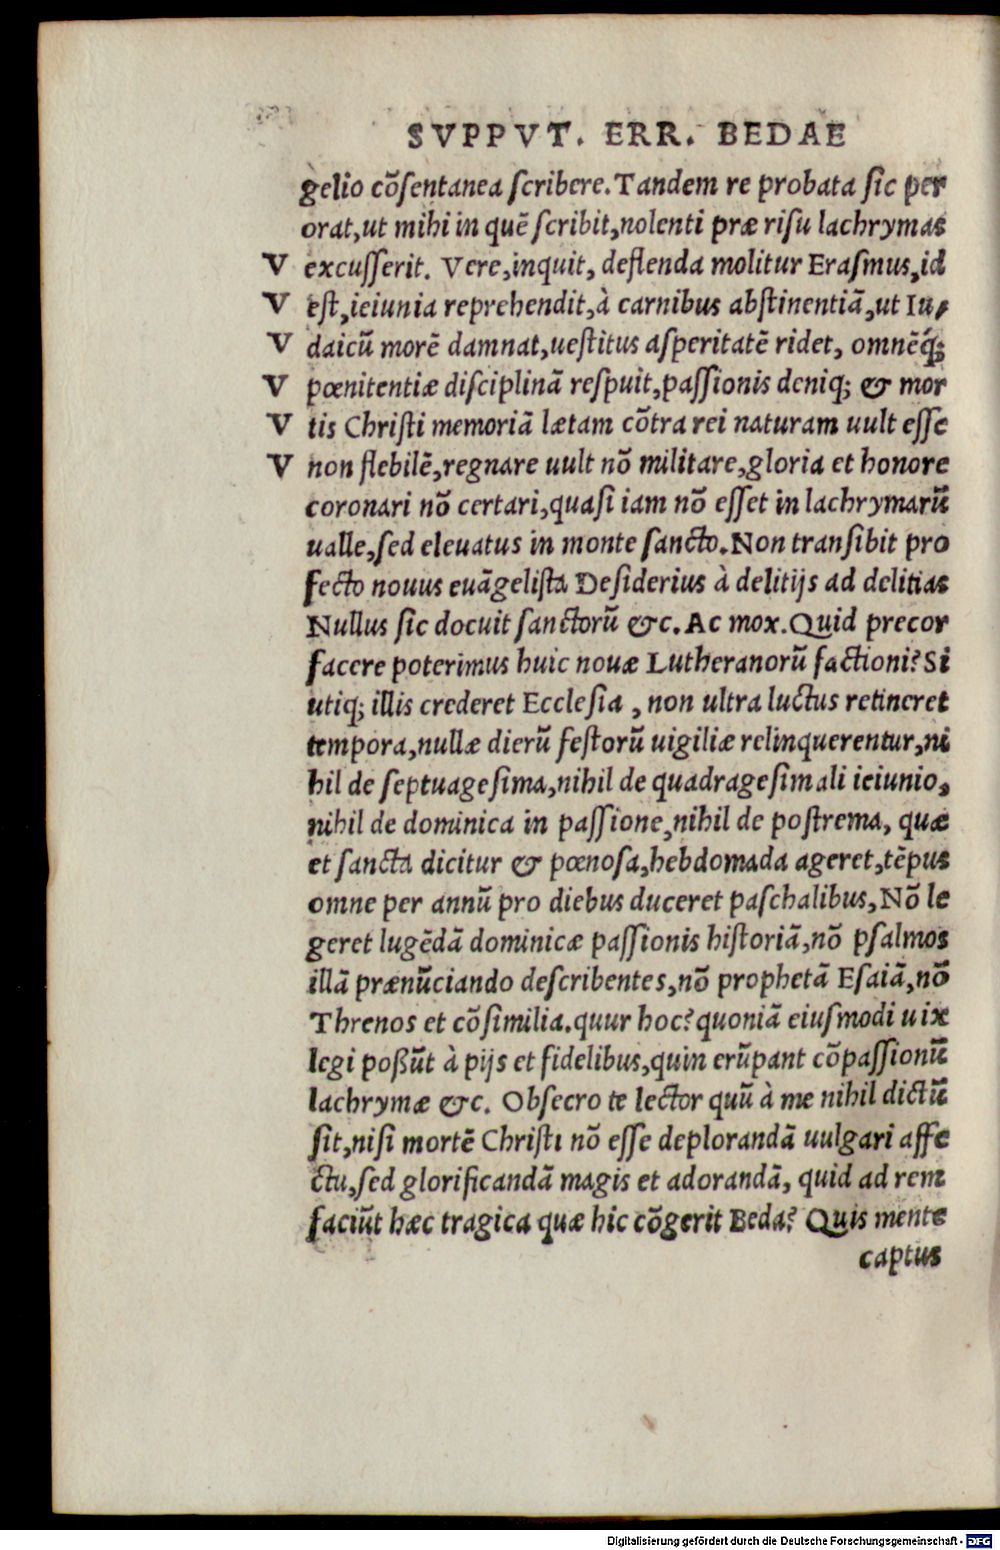 SVPPVT. ERR. BEDAE
gelio cõsentanea scribere. Tandem re probata sic per
orat, ut mihi in quẽ scribit, nolenti præ risu lachrymas
V excusserit. Vere, inquit, deflenda molitur Erasmus, id
V est, ieiunia reprehendit, à carnibus abstinentiã, ut Iu,
V daicũ morẽ damnat, uestitus asperitatẽ ridet, omnẽq́;
V pœnitentiæ disciplinã respuit, passionis deniq; & mor
V tis Christi memoriã lætam cõtra rei naturam uult esse
V non flebilẽ, regnare uult nõ militare, gloria et honore
coronari nõ certari, quasi iam nõ esset in lachrymarũ
ualle, sed eleuatus in monte sancto. Non transibit pro
fecto nouus euãgelista Desiderius à delitijs ad delitias
Nullus sic docuit sanctorũ &c. Ac mox. Quid precor
facere poterimus huic nouæ Lutheranorũ factioni? Si
utiq; illis crederet Ecclesia, non ultra luctus retineret
tempora, nullæ dierũ festorũ uigiliæ relinquerentur, ni
hil de septuagesima, nihil de quadragesimali ieiunio,
nihil de dominica in passione, nihil de postrema, quæ
et sancta dicitur & pœnosa, hebdomada ageret, tẽpus
omne per annũ pro diebus duceret paschalibus, Nõ le
geret lugẽdã dominicæ passionis historiã, nõ psalmos
illã prænũciando describentes, nõ prophetã Esaiã, nõ
Threnos et cõsimilia. quur hoc? quoniã eiusmodi uix
legi poßũt à pijs et fidelibus, quin erũpant cõpassionũ
lachrymæ &c. Obsecro te lector quũ à me nihil dictũ
sit, nisi mortẽ Christi nõ esse deplorandã uulgari affe
ctu, sed glorificandã magis et adorandã, quid ad rem
faciũt hæc tragica quæ hic cõgerit Beda? Quis mente
captus
Digitalisierung gefördert durch die Deutsche Forschungsgemeinschaft - DFG